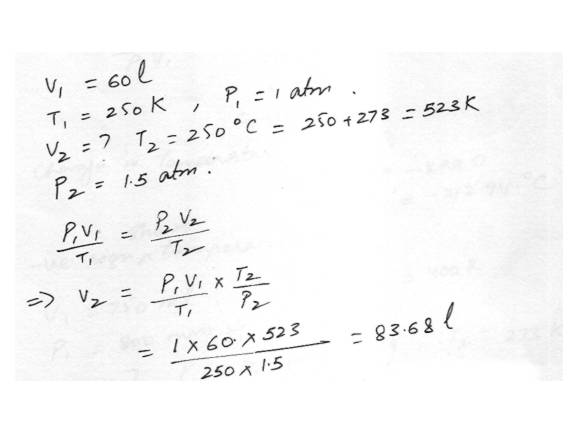 V₁ = 60 l
T₁ = 250 K , P₁ = 1 atm .
V₂ = ? T₂ = 250 °C = 250 + 273 = 523 K
P₂ = 1.5 atm .
P₁V₁ / T₁ = P₂ V₂ / T₂
=> V₂ = P₁ V₁ / T₁ × T₂ / P₂
= 1 × 60 × 523 / 250 × 1.5 = 83.68 l